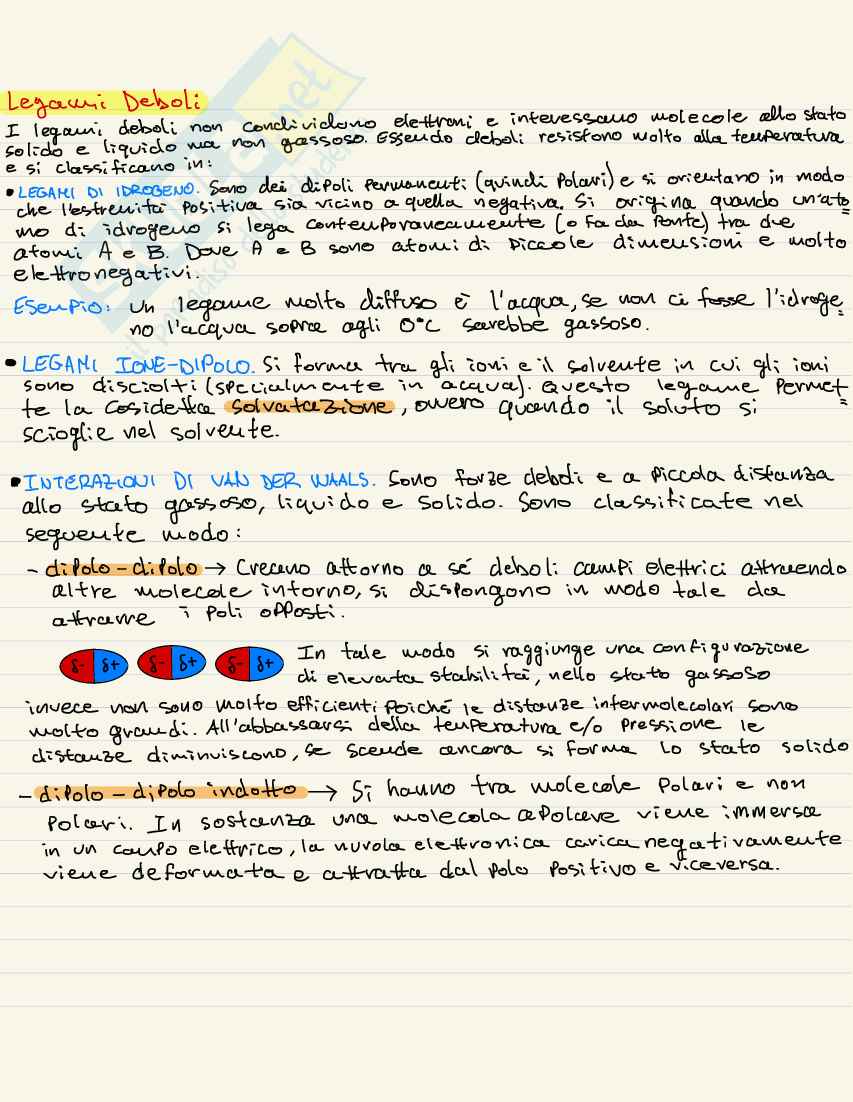 Legami Deboli
I legami deboli non condividono elettroni e interessano molecole allo stato
solido e liquido ma non gassoso. Essendo deboli resistono molto alla temperatura
e si classificano in:
• LEGAMI DI IDROGENO. Sono dei dipoli permanenti (quindi polari) e si orientano in modo
che l'estremità positiva sia vicino a quella negativa. Si origina quando un'ato=
mo di idrogeno si lega contemporaneamente (o fa da ponte) tra due
atomi A e B. Dove A e B sono atomi di piccole dimensioni e molto
elettronegativi.
Esempio: Un legame molto diffuso è l'acqua, se non ci fosse l'idroge=
no l'acqua sopra agli 0°C sarebbe gassoso.
• LEGAMI IONE-DIPOLO. Si forma tra gli ioni e il solvente in cui gli ioni
sono disciolti (specialmente in acqua). Questo legame permet=
te la cosidetta solvatazione, ovvero quando il soluto si
scioglie nel solvente.
• INTERAZIONI DI VAN DER WAALS. Sono forze deboli e a piccola distanza
allo stato gassoso, liquido e solido. Sono classificate nel
seguente modo:
- dipolo-dipolo → Creano attorno a sé deboli campi elettrici attraendo
altre molecole intorno, si dispongono in modo tale da
attrarre i poli opposti.
δ- δ+ δ- δ+ δ- δ+ In tale modo si raggiunge una configurazione
di elevata stabilità, nello stato gassoso
invece non sono molto efficienti poiché le distanze intermolecolari sono
molto grandi. All'abbassarsi della temperatura e/o pressione le
distanze diminuiscono, se scende ancora si forma lo stato solido
- dipolo-dipolo indotto → Si hanno tra molecole polari e non
polari. In sostanza una molecola apolare viene immersa
in un campo elettrico, la nuvola elettronica carica negativamente
viene deformata e attratta dal polo positivo e viceversa.